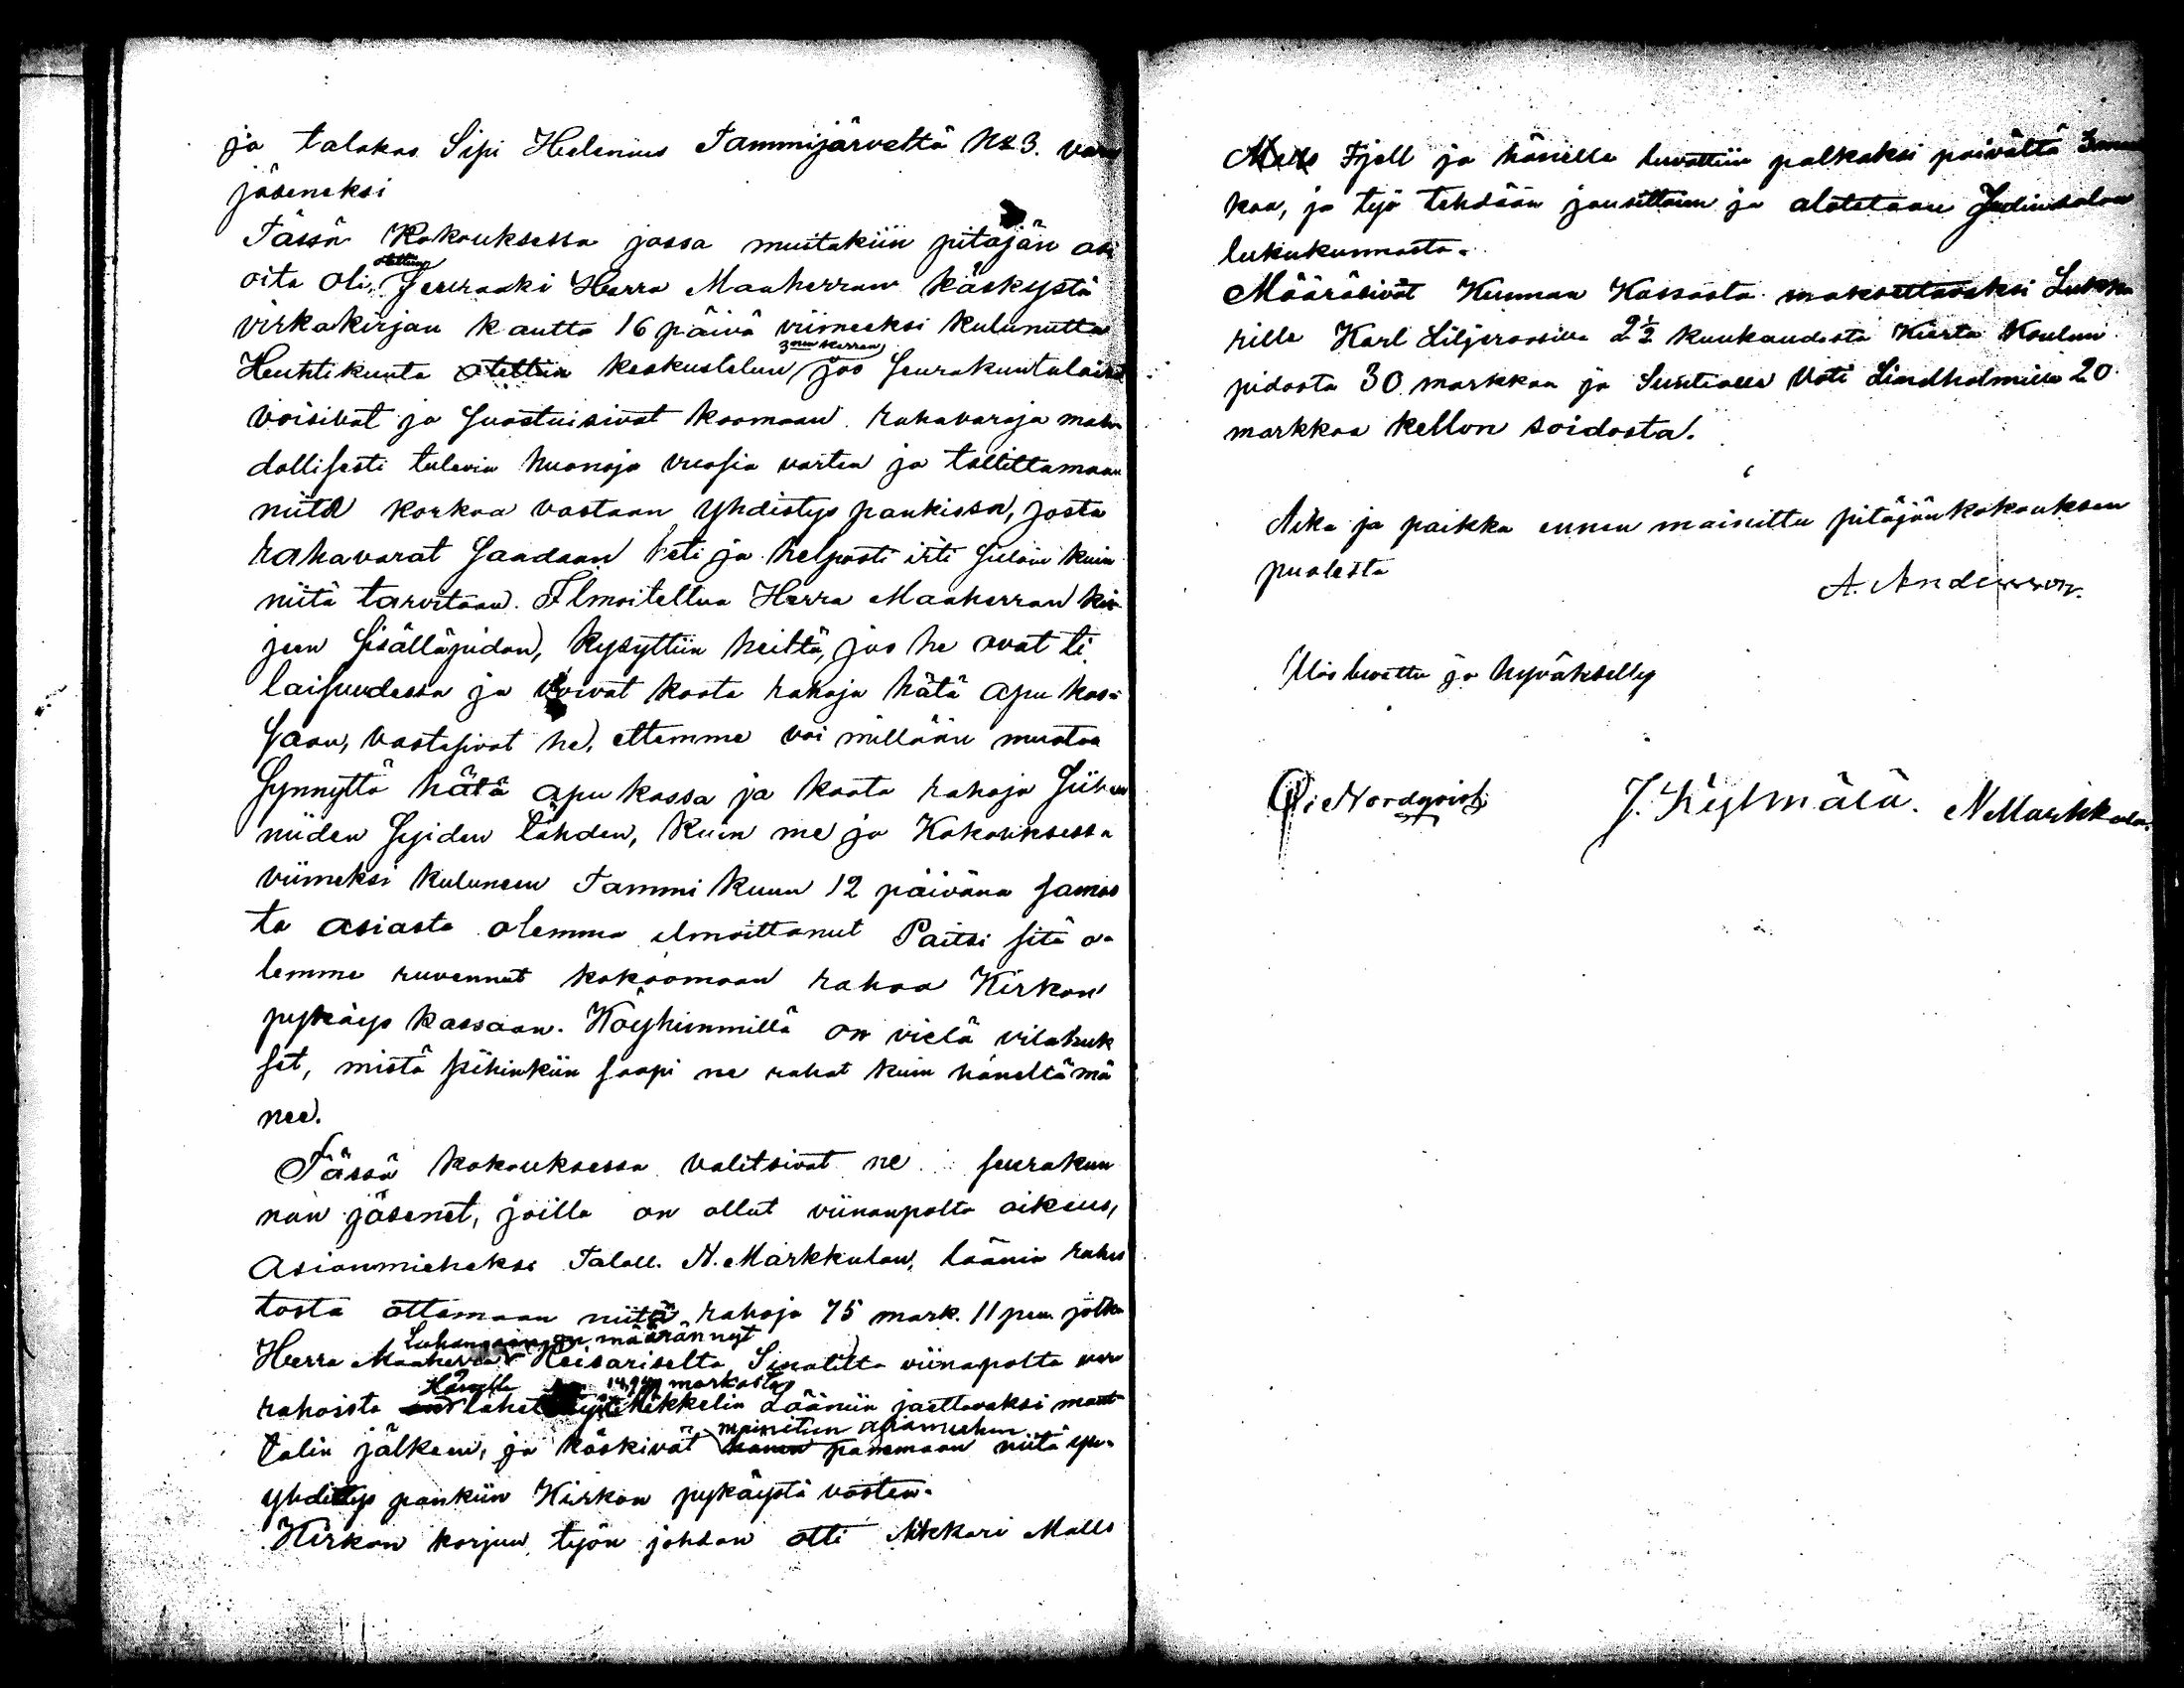 ja talokas Sipi Helenius Tammijärveltä No 3. vara
jäseneksi
Tässä Kokouksessa jossa muitakiin pitäjän asi
oita oli, otettiin Seuraaki Herra Maaherran käskystä
virkakirjan kautta 16 päivä viimeeksi kulunutta
Huhtikuuta otettiin keskusteluun 3nen kerran jos seurakuntalaiset
voisivat ja suostuisivat koomaan rahavaroja mah-
dollisesti tulevia huonoja vuosia varten ja tallittamaan
niitä korkoa vastaan yhdistys pankissa, josta
rahavarat saadaan heti ja helposti irti silloin kuin
niitä tarvitaan. Ilmoitettua Herra Maaherran kir-
jeen sisälläpidon, kysyttiin heiltä, jos he ovat ti
laisuudessa ja voivat koota rahoja hätä apu kas-
saan, vastasivat he, ettemme voi millään muotoa
synnyttä hätä apu kassa ja koota rahoja siihen
niiden syiden tähden, kuin me jo Kokouksessa
viimeksi kuluneen Tammi kuun 12 päivänä samas
ta asiasta olemme ilmoittanut Paitsi sitä o-
lemme ruvennut kokoomaan rahaa Kirkon
pykäys kassaan. Köyhimmillä on vielä vilahuk
set, mistä sihinkiin saapi ne rahat kuin häneltä mä
nee.
Tässä kokouksessa valitsivat ne seurakun
nan jäsenet, joilla on ollut viinanpolta oikeus,
asianmieheksi Taloll. N. Markkulan, läänin rahas
tosta ottamaan niitä rahoja 75 mark. 11 pen. jotka
Herra Maaherra Luhangaan on määrännyt Keisariselta Senatilta viinapolta vero
rahoista Hänelle lähetettyistä 14,940 markasta Mikkelin Lääniin jaettavaksi mant-
talin jälkeen, ja käskivät mainitun asiamiehen panemaan niitä
yhdistys pankiin Kirkon pykäystä vasten.
Kirkon korjuu työn johdon otti Nikkari Malls
Mats Fjell ja hänelle luvattiin palkaksi päivältä 3 mark
kaa, ja työ tehdään jousittain ja alotetaan Judinsalon
lukukunnasta.
Määräsivät Kunnan Kassasta maksettavaksi Lukka
rille Karl Liljeroosille 2½ kuukaudesta Kierto Koulun
pidosta 30 markkaa ja Suntialle Voti Lindholmille 20
markkaa kellon soidosta.
Aika ja paikka ennen mainittu pitäjänkokouksen
puolesta
A. Andersson.
Ylös luvattu ja hyväksytty
O: Nordqvist J. Kylmälä. N Markkula.